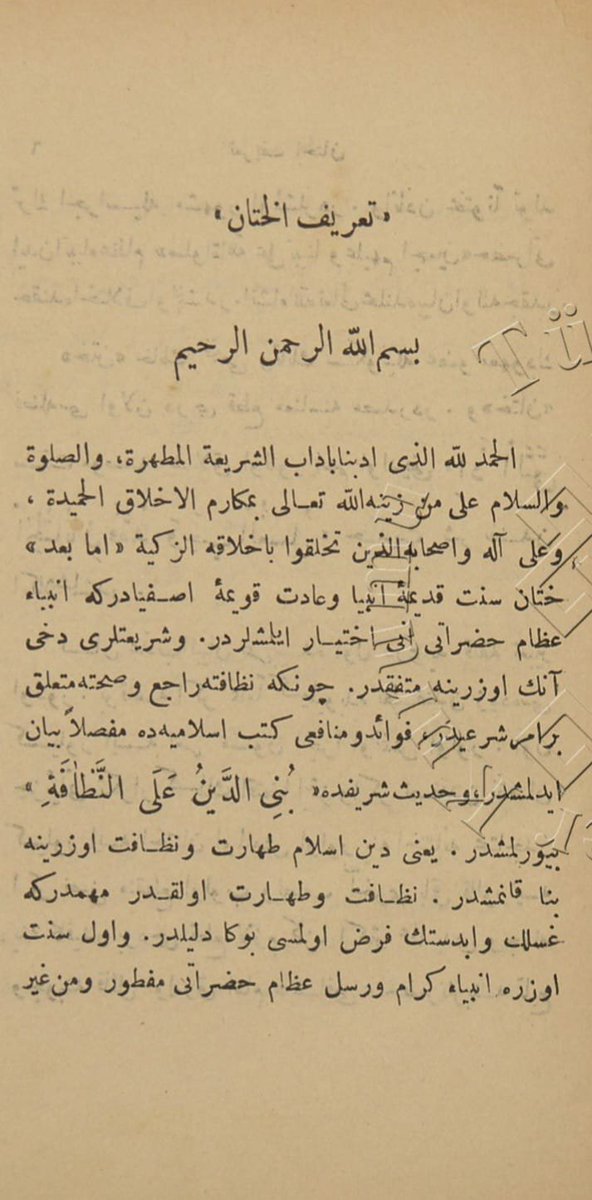 «تعريف الختان»
بسم الله الرحمن الرحيم
الحمد لله الذى ادبنا باداب الشريعة المطهرة، والصلوة
والسلام على من زينه الله تعــالى بمكارم الاخلاق الحميدة ،
وعلى آله واصحابه الذين تخلقوا باخلاقه الزكية «اما بعد»
ختان سنت قديمۀ انبيا وعادت قويمۀ اصــفيادركه انبياء
عظام حضراتى انى اختيــار ايلمشلردر. وشريعتلرى دخى
آنك اوزرينه متفقدر. چونكه نظافته راجع وصحته متعلق
بر امر شرعيدر، فوائد ومنافعى كتب اسلاميه ده مفصلاً بيان
ايدلمشدر، وحديث شريفده « بُنِى الدَّينُ عَلَى النَّظاٰفَةِ »
بيورلمشدر . يعنى دين اسلام طهارت ونظــافت اوزرينه
بنا قلنمشدر . نظــافت وطهــارت اولقــدر مهمدركه
غسلك وابدستك فرض اولمسى بوكا دليلدر. واول سنت
اوزره انبياء كرام ورسل عظام حضراتى مفطور ومن غير